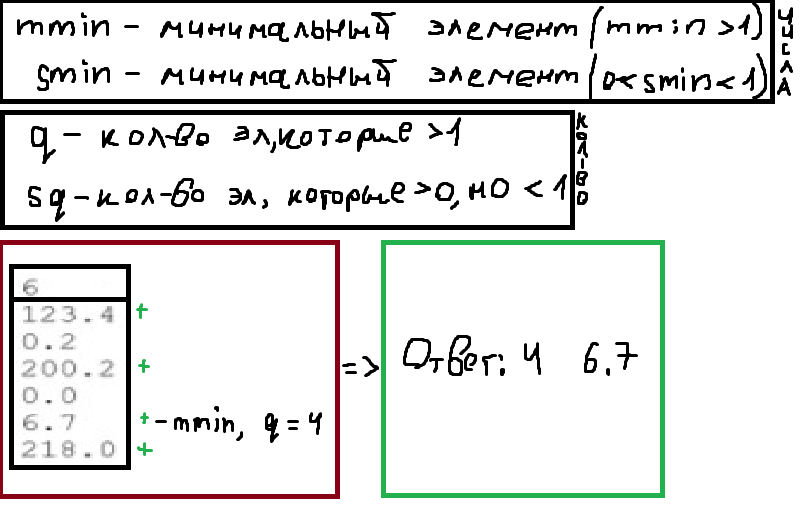 mmin - минимальный элемент (mmin >1)
smin - минимальный элемент (0< smin < 1)
ЧИСЛА
q - кол-во эл, которые >1
sq - кол-во эл, которые >0, но < 1
КОЛ-ВО
6
123.4 +
0.2
200.2 +
0.0
6.7 + - mmin, q = 4
218.0 +
=> Ответ: 4 6.7